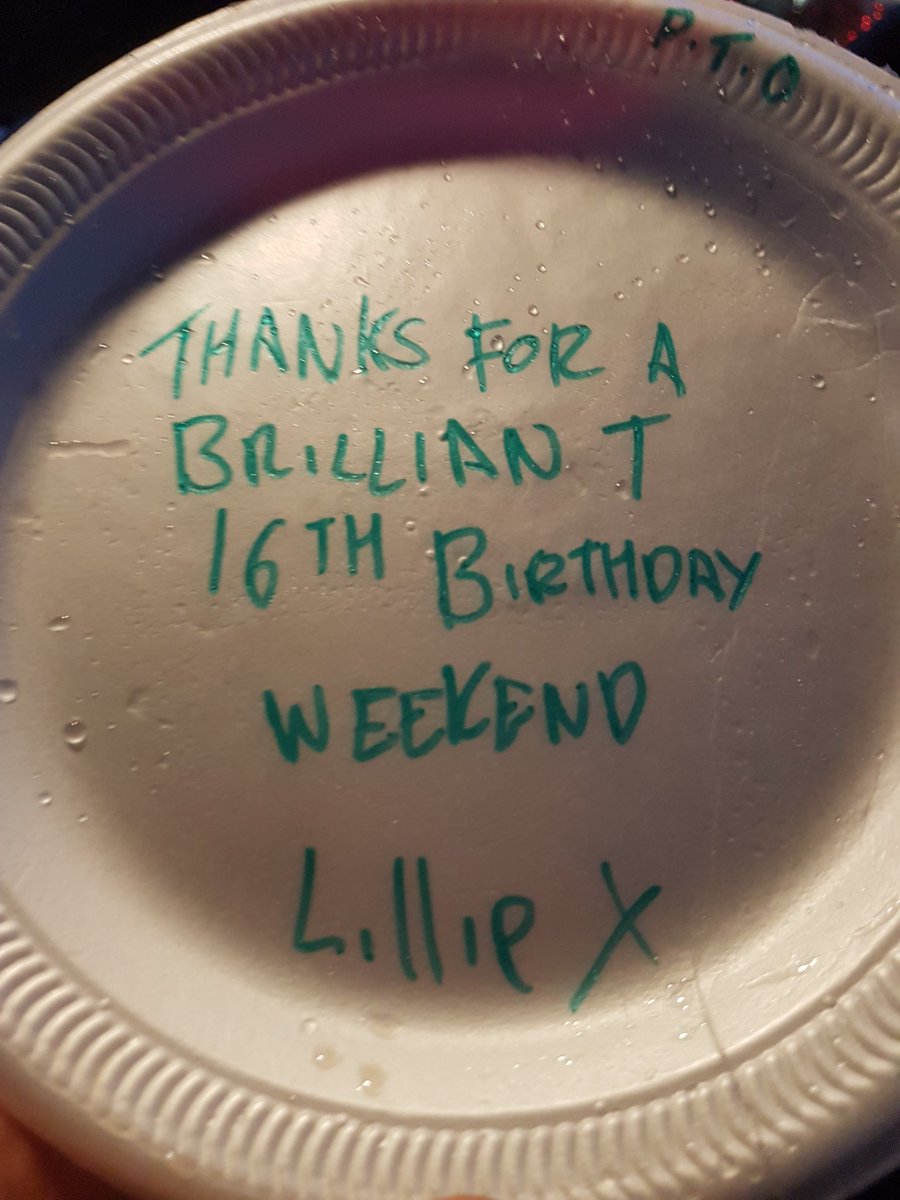 P.T.O
THANKS FOR A
BRILLIANT
16TH BIRTHDAY
WEEKEND
Lillie X